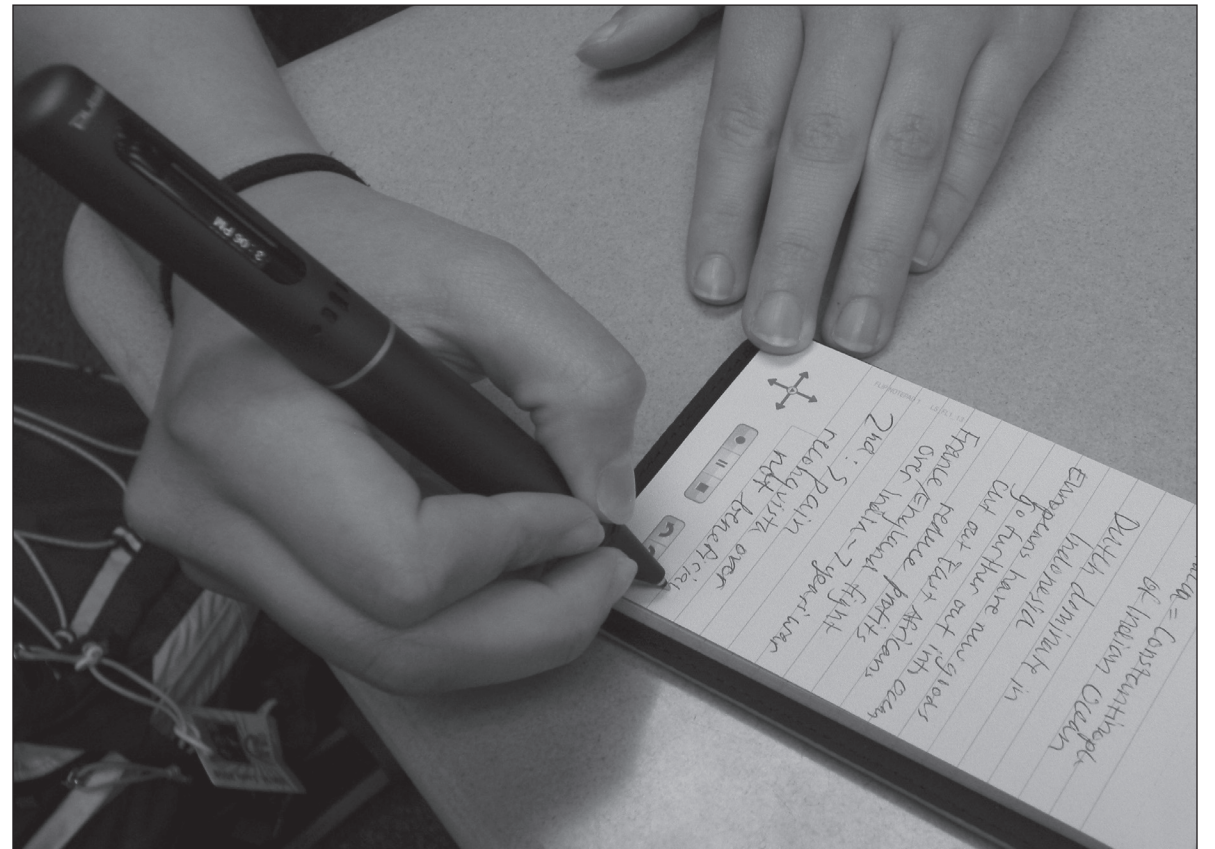 = Constantinopl
of Indian Ocean
Dutch dominate in
Indonesia
Europeans have new goods
go further out into ocean
cut out East Africans
reduce profits
France/England fight
over India → 7 year war
2nd: Spain
reconquista over
not beneficial
3:06 PM